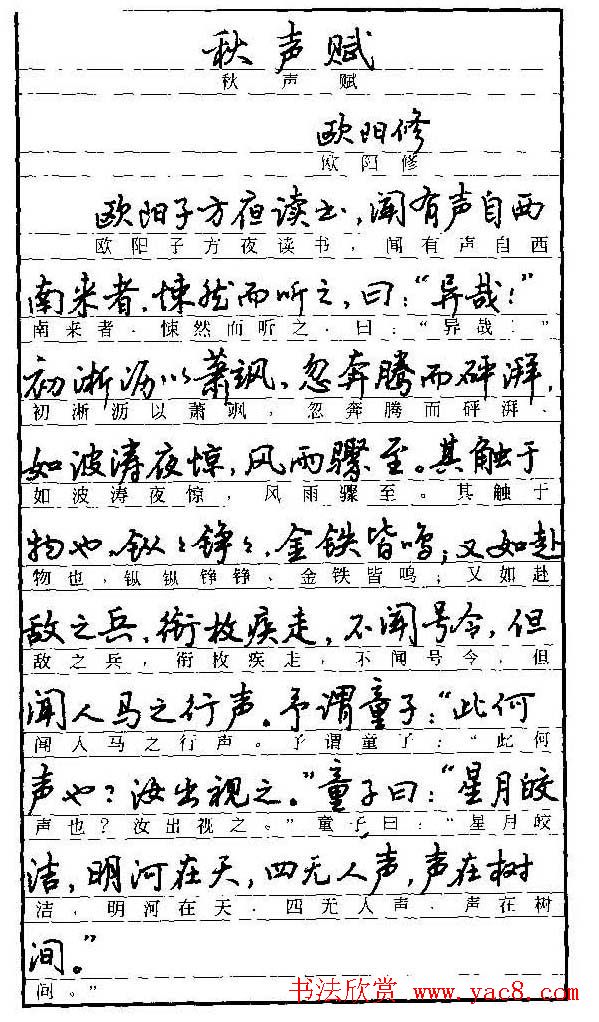 秋声赋
秋声赋
欧阳修
欧阳修
欧阳子方夜读书，闻有声自西
欧阳子方夜读书，闻有声自西
南来者，悚然而听之，曰：“异哉！”
南来者，悚然而听之，曰：“异哉！”
初淅沥以萧飒，忽奔腾而砰湃，
初淅沥以萧飒，忽奔腾而砰湃，
如波涛夜惊，风雨骤至。其触于
如波涛夜惊，风雨骤至。其触于
物也，鏦々铮々，金铁皆鸣；又如赴
物也，鏦鏦铮铮，金铁皆鸣；又如赴
敌之兵，衔枚疾走，不闻号令，但
敌之兵，衔枚疾走，不闻号令，但
闻人马之行声。予谓童子：“此何
闻人马之行声。予谓童子：“此何
声也？汝出视之。”童子曰：“星月皎
声也？汝出视之。”童子曰：“星月皎
洁，明河在天，四无人声，声在树
洁，明河在天，四无人声，声在树
间。”
间。”
书法欣赏 www.yac8.com